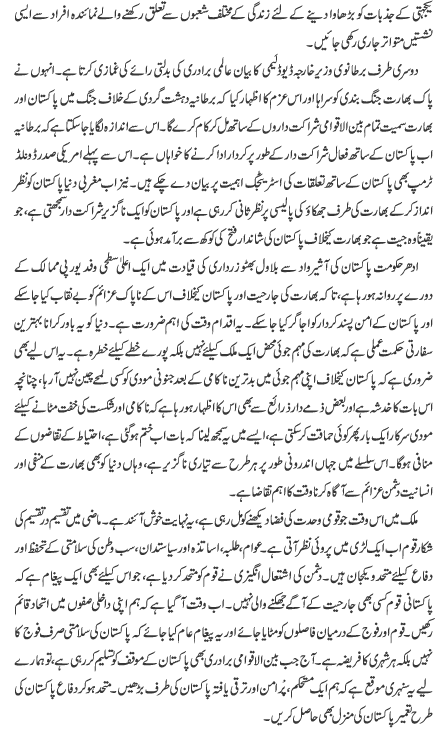 یکجہتی کے جذبات کو بڑھاوا دینے کے لئے زندگی کے مختلف شعبوں سے تعلق رکھنے والے نمائندہ افراد سے ایسی
نشستیں متواتر جاری رکھی جائیں۔
دوسری طرف برطانوی وزیر خارجہ ڈیوڈ لیمی کا بیان عالمی برادری کی بدلتی رائے کی غمازی کرتا ہے۔ انہوں نے
پاک بھارت جنگ بندی کو سراہا اور اس عزم کا اظہار کیا کہ برطانیہ دہشت گردی کے خلاف جنگ میں پاکستان اور
بھارت سمیت تمام بین الاقوامی شراکت داروں کے ساتھ مل کر کام کرے گا۔ اس سے اندازہ لگایا جا سکتا ہے کہ برطانیہ
اب پاکستان کے ساتھ فعال شراکت دار کے طور پر کردار ادا کرنے کا خواہاں ہے۔ اس سے پہلے امریکی صدر ڈونلڈ
ٹرمپ بھی پاکستان کے ساتھ تعلقات کی اسٹریٹجک اہمیت پر بیان دے چکے ہیں۔ نیز اب مغربی دنیا پاکستان کو نظر
انداز کر کے بھارت کی طرف جھکاؤ کی پالیسی پر نظر ثانی کر رہی ہے اور پاکستان کو ایک ناگزیر شراکت دار سمجھتی ہے، جو
یقیناً وہ جیت ہے جو بھارت کیخلاف پاکستان کی شاندار فتح کی کوکھ سے برآمد ہوئی ہے۔
ادھر حکومت پاکستان کی آشیرواد سے بلاول بھٹو زرداری کی قیادت میں ایک اعلیٰ سطحی وفد یورپی ممالک کے
دورے پر روانہ ہو رہا ہے، تاکہ بھارت کی جارحیت اور پاکستان کیخلاف اس کے ناپاک عزائم کو بے نقاب کیا جا سکے
اور پاکستان کے امن پسند کردار کو اجاگر کیا جا سکے۔ یہ اقدام وقت کی اہم ضرورت ہے۔ دنیا کو یہ باور کرانا بہترین
سفارتی حکمت عملی ہے کہ بھارت کی مہم جوئی محض ایک ملک کیلئے نہیں بلکہ پورے خطے کیلئے خطرہ ہے۔ یہ اس لیے بھی
ضروری ہے کہ پاکستان کیخلاف اپنی مہم جوئی میں بدترین ناکامی کے بعد جنونی مودی کو کسی لمحے چین نہیں آ رہا، چنانچہ
اس بات کا خدشہ ہے اور بعض ذمے دار ذرائع سے بھی اس کا اظہار ہو رہا ہے کہ ناکامی اور شکست کی خفت مٹانے کیلئے
مودی سرکار ایک بار پھر کوئی حماقت کر سکتی ہے، ایسے میں یہ سمجھ لینا کہ بات اب ختم ہو گئی ہے، احتیاط کے تقاضوں کے
منافی ہوگا۔ اس سلسلے میں جہاں اندرونی طور پر ہر طرح سے تیاری ناگزیر ہے، وہاں دنیا کو بھی بھارت کے منفی اور
انسانیت دشمن عزائم سے آگاہ کرنا وقت کا اہم تقاضا ہے۔
ملک میں اس وقت جو قومی وحدت کی فضا دیکھنے کو مل رہی ہے، یہ نہایت خوش آئند ہے۔ ماضی میں تقسیم در تقسیم کی
شکار قوم اب ایک لڑی میں پروئی نظر آتی ہے۔ عوام، طلبہ، اساتذہ اور سیاستدان، سب وطن کی سلامتی کے تحفظ اور
دفاع کیلئے متحد و یکجان ہیں۔ دشمن کی اشتعال انگیزی نے قوم کو متحد کر دیا ہے، جو اس کیلئے بھی ایک پیغام ہے کہ
پاکستانی قوم کسی بھی جارحیت کے آگے جھکنے والی نہیں۔ اب وقت آ گیا ہے کہ ہم اپنی داخلی صفوں میں اتحاد قائم
رکھیں۔ قوم اور فوج کے درمیان فاصلوں کو مٹایا جائے اور یہ پیغام عام کیا جائے کہ پاکستان کی سلامتی صرف فوج کا
نہیں بلکہ ہر شہری کا فریضہ ہے۔ آج جب بین الاقوامی برادری بھی پاکستان کے موقف کو تسلیم کر رہی ہے، تو ہمارے
لیے یہ سنہری موقع ہے کہ ہم ایک مستحکم، پرامن اور ترقی یافتہ پاکستان کی طرف بڑھیں۔ متحد ہو کر دفاع پاکستان کی
طرح تعمیر پاکستان کی منزل بھی حاصل کریں۔